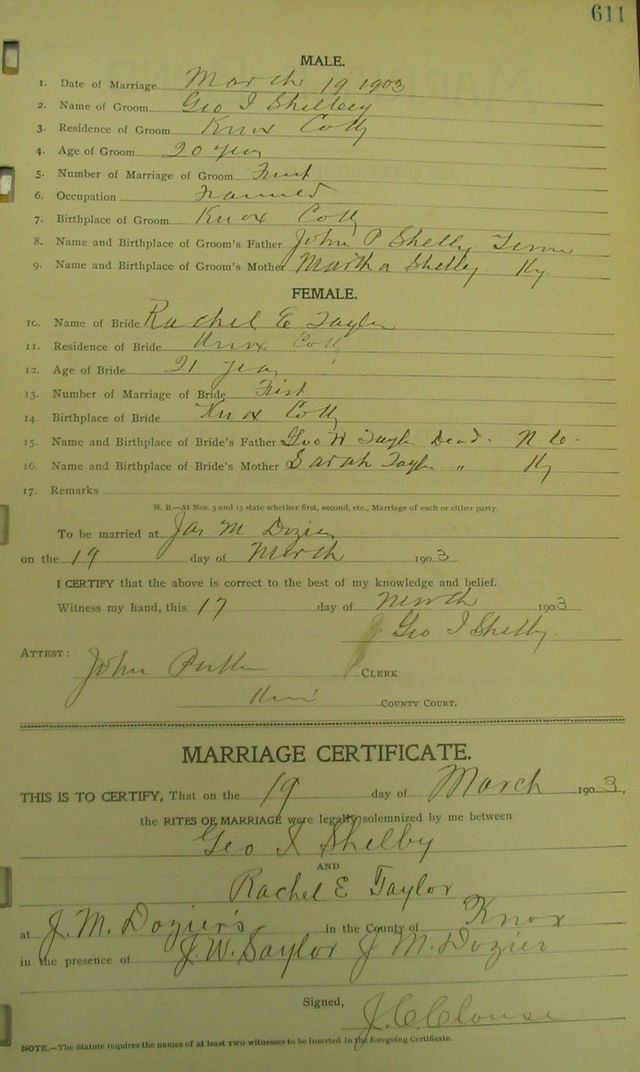 611
MALE.
1. Date of Marriage March 19 1903
2. Name of Groom Geo I Shelby
3. Residence of Groom Knox Coty
4. Age of Groom 20 year
5. Number of Marriage of Groom First
6. Occupation
7. Birthplace of Groom Knox Coty
8. Name and Birthplace of Groom's Father John P Shelby Tenn
9. Name and Birthplace of Groom's Mother Martha Shelby Ky
FEMALE.
10. Name of Bride Rachel E Taylor
11. Residence of Bride Knox Coty
12. Age of Bride 21 year
13. Number of Marriage of Bride First
14. Birthplace of Bride Knox Coty
15. Name and Birthplace of Bride's Father Geo W Taylor Dead. N Co-
16. Name and Birthplace of Bride's Mother Sarah Taylor " Ky
17. Remarks
N. B.—At Nos. 5 and 13 state whether first, second, etc., Marriage of each or either party.
To be married at Jas M Dozier
on the 19 day of March 1903
I CERTIFY that the above is correct to the best of my knowledge and belief.
Witness my hand, this 17 day of March 1903
Geo I Shelby
ATTEST: John CLERK
COUNTY COURT.
MARRIAGE CERTIFICATE.
THIS IS TO CERTIFY, That on the 19 day of March 1903,
the RITES OF MARRIAGE were legally solemnized by me between
Geo I Shelby
AND
Rachel E Taylor
at J. M. Dozier's in the County of Knox
in the presence of J. W. Saylor J M. Dozier
Signed,
J. C. Clouse
NOTE.—The Statute requires the names of at least two witnesses to be inserted in the foregoing Certificate.